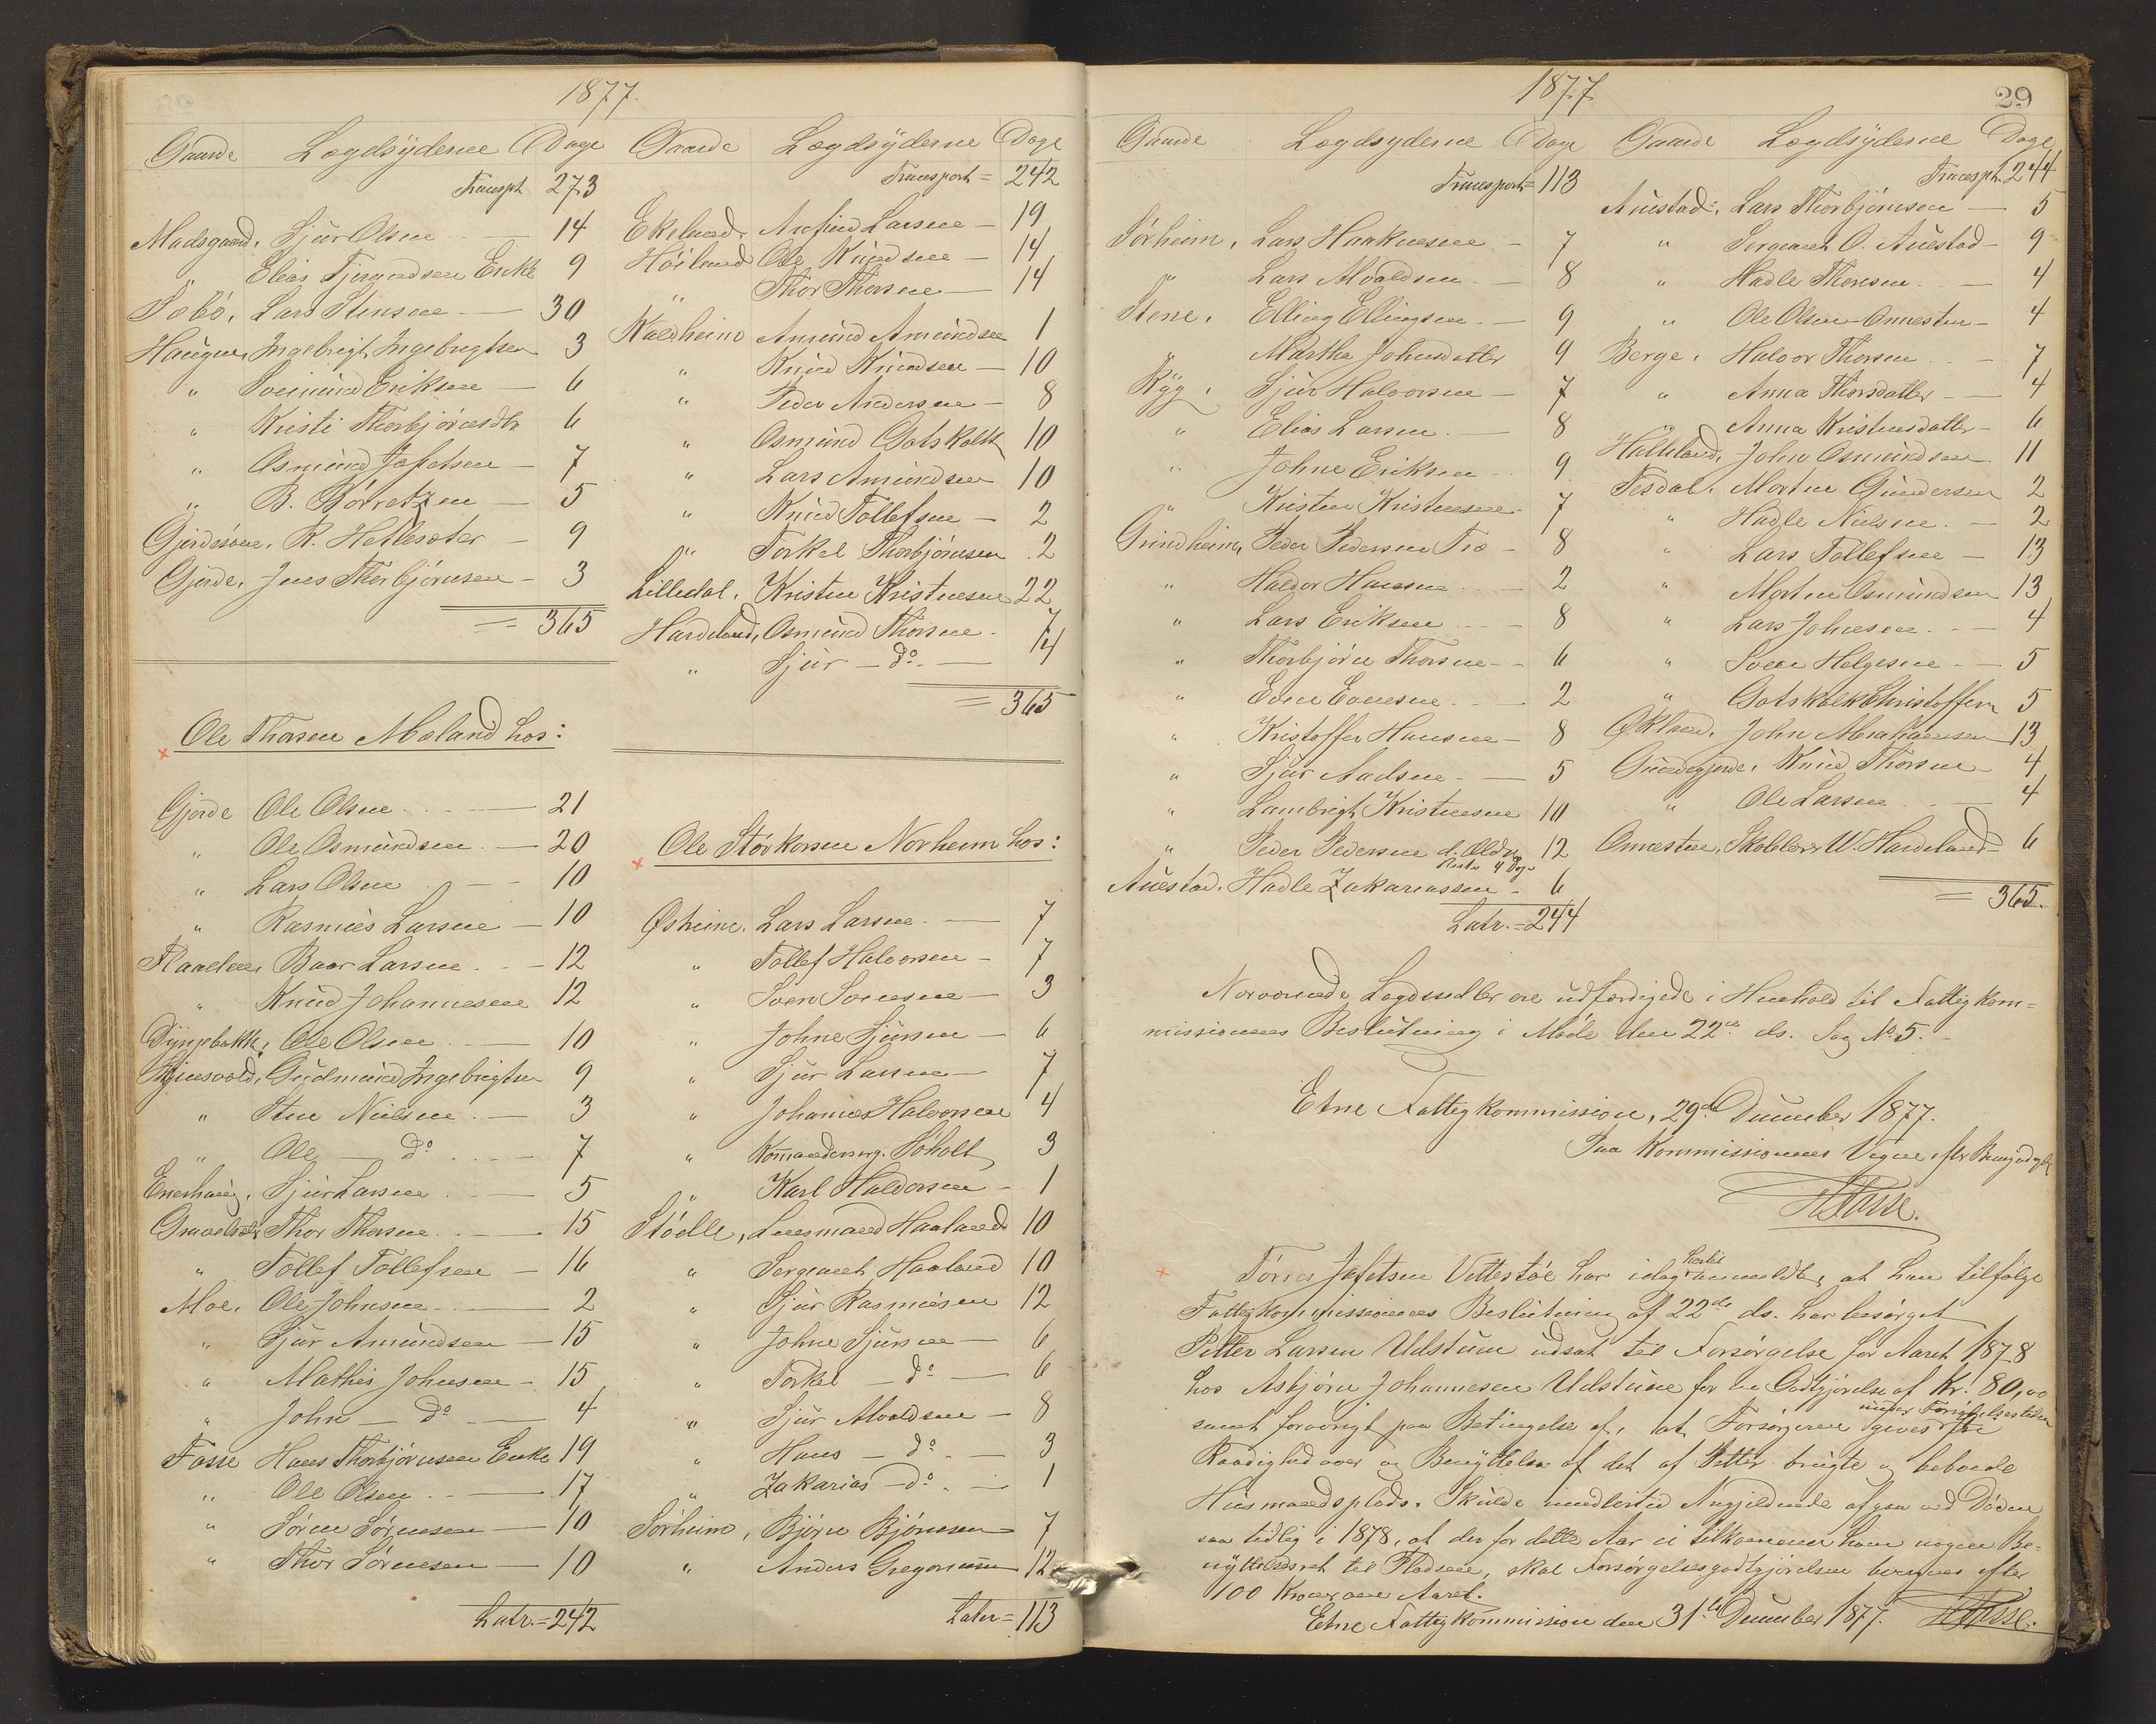 1877.
Gaarde Lægdsyderne Dage
Transpt. 273
Madsgaard. Sjur Olsen — 14
" Elias Fjermedsen Enke 9
Sebø. Lars Stensen — 30
Haugen, Ingebrigt Ingebrigtsen 3
" Sveinund Eriksen — 6
" Kristi Thorbjørnsdtr 6
" Osmund Jafetsen — 7
" B. Børretzen — 5
R. Hetlesæter — 9
Gjerde, Jens Thorbjørnsen — 3
= 365
Ole Thorsen Mæland hos:
Gjerde Ole Olsen — 21
" Ole Osmundsen — 20
" Lars Olsen — 10
" Rasmus Larsen — 10
Flaaden, Baar Larsen — 12
" Knud Johannesen 12
Dyngebakk, Ole Olsen — 10
Gudmund Ingebrigtsen 9
" Sten Nielsen — 3
" Ole — do — 7
Enerhaug, Sjur Larsen — 5
Thor Thorsen — 15
" Tollef Tollefsen — 16
Moe, Ole Johnsen — 2
" Sjur Amundsen — 15
" Mathis Johnsen — 15
" John — do — 4
Fosse Hans Thorbjørnsen Enke 19
" Ole Olsen — 17
" Søren Sørensen — 10
" Thor Sørensen — 10
Latr. = 242
Gaarde Lægdsyderne Dage
Transport = 242
Ekeland, Arefind Larsen — 19
Høiland Ole Knudsen — 14
" Thor Thorsen — 14
Kaldheim Amund Amundsen 1
" Knud Knudsen — 10
" Peder Andersen — 8
" Osmund Gotskalk 10
" Lars Amundsen 10
" Knud Tollefsen — 2
" Torkel Thorbjørnsen 2
Lilledal, Kristen Kristensen 22
Hardeland, Osmund Thorsen — 7
" Sjur — do — 14
= 365
Ole Størkorsen Norheim hos:
Østreim. Lars Larsen — 7
" Tollef Halvorsen — 7
" Sven Svensen — 3
" Johne Sjursen — 6
" Sjur Larsen — 7
" Johannes Halvorsen 4
" Komandersrg. Søholt 3
" Karl Haldorsen — 1
Stødle, Lensmand Haaland 10
" Sergeant Haaland 10
" Sjur Rasmusen 12
" Johne Sjursen — 6
" Torkel — do — 6
" Sjur Alvaldsen — 8
" Hans — do — 3
" Zakarias — do — 1
Sørheim, Bjørn Bjørnsen 7
" Anders Gregoriusen 12
Later = 113
1877.
29
Gaarde Lægdsyderne Dage
Transport = 113
Sørheim, Lars Haaknesen — 7
" Lars Alvaldsen — 8
Stene, Elling Ellingsen — 9
" Martha Johnsdatter 9
Ryg, Sjur Halvorsen — 7
" Elias Larsen — 8
" Johne Eriksen 9
" Kristen Kristensen 7
Grindheim, Peder Pedersen Træ — 8
" Haldor Hansen — 2
" Lars Eriksen — 8
" Thorbjørn Thorsen — 6
" Even Evensen — 2
" Kristoffer Hansen — 8
" Sjur Aadsen — 5
" Lambrigt Kristensen 10
" Peder Pedersen d. Ældre 12
Auestad. Hadle Zakariassen — 6
Latr. = 244
Gaarde Lægdsyderne Dage
Transpt. 244
Auestad: Lars Thorbjørnsen — 5
" Sergeant O. Auestad — 9
" Hadle Thoresen — 4
" Ole Olsen Onnesten — 4
Berge, Halvor Thorsen — 7
" Anna Thorsdatter — 4
" Anna Kristensdatter — 6
Halleland, John Osmundsen 11
Tesdal, Morten Gundersen 2
" Hadle Nielsen — 2
" Lars Tollefsen — 13
" Morten Osmundsen 13
" Lars Johnsen — 4
" Sven Helgesen — 5
" Gotskalk Christoffersen 5
Økland, John Abrahamsen 13
Gundegjerde, Knud Thorsen — 4
" Ole Larsen — 4
Onnesten, Skolelærer W. Hardeland 6
= 365.
Nærværende Lægdssedler ere udfærdigede i Henhold til Fattigkom-
missionens Beslutning i Møde den 22de ds. Sag No 5.
Etne Fattigkommission, 29de December 1877.
Paa Kommissionens Vegne, efter Bemyndigelse
H Fosse.
Tørres Jafetsen Vettestøe har idag hertil anmeldt, at han tilfølge
Fattigkommissionens Beslutning af 22de ds. har besørget
Petter Larsen Udstuen udsat til Forsørgelse for Aaret 1878
hos Asbjørn Johannesen Udstuen for en Godtgjørelse af Kr. 80,00
samt forøvrigt paa Betingelse af, at Forsørgeren gives under Forsørgelsestiden fri
Raadighed over og Benyttelse af det af Petter brugte og beboede
Husmandsplads. Skulde imidlertid Angjældende afgaa ved Døden
saa tidlig i 1878, at der for dette Aar ei tilkommer ham nogen Be-
nyttelsesret til Pladsen, skal Forsørgelsesgodtgjørelsen beregnes efter
100 Kroner om Aaret.
Etne Fattigkommission den 31te December 1877. H Fosse.